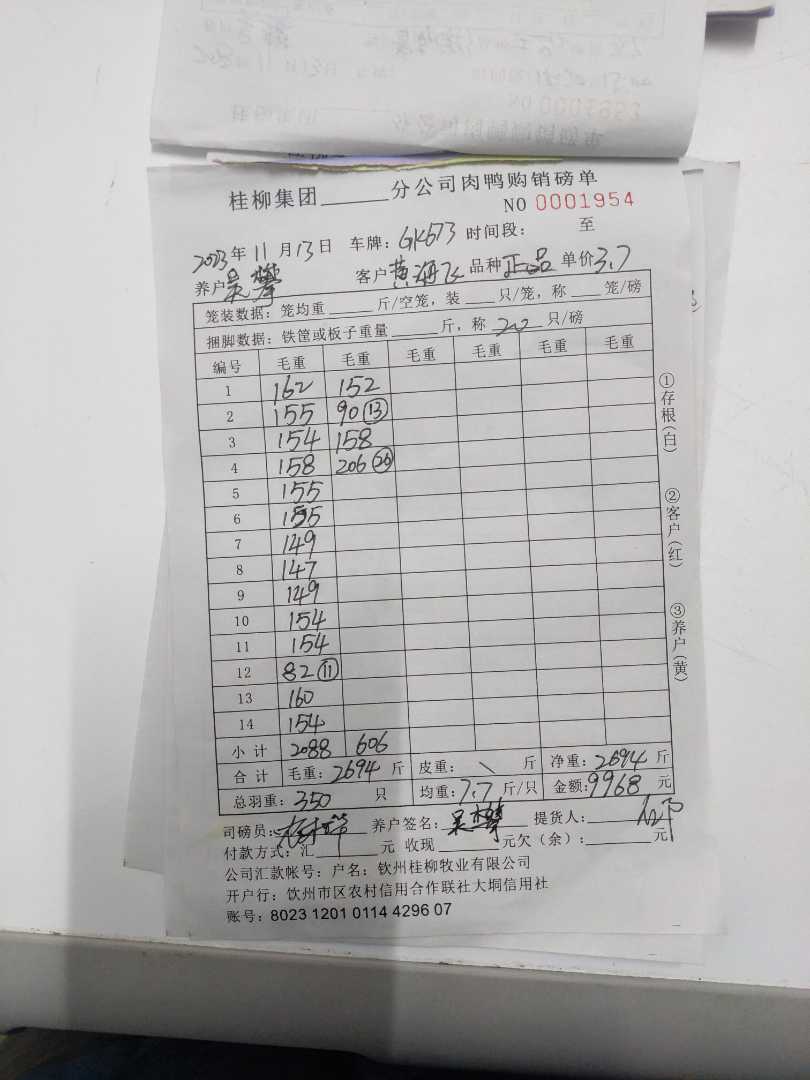 桂柳集团______分公司肉鸭购销磅单
NO 0001954
2023年11月13日 车牌：GK673 时间段： 至
养户 吴攀 客户 黄海飞 品种 正品 单价 3.7
笼装数据：笼均重____斤/空笼，装___只/笼，称___笼/磅
捆脚数据：铁筐或板子重量____斤，称 20 只/磅
编号 毛重 毛重 毛重 毛重 毛重 毛重
1 162 152
2 155 90 ⑬
3 154 158
4 158 206 ㉖
5 155
6 155
7 149
8 147
9 149
10 154
11 154
12 82 ⑪
13 160
14 154
小计 2088 606
合计 毛重：2694 斤 皮重：\ 斤 净重：2694 斤
总羽重：350 只 均重：7.7 斤/只 金额：9968 元
司磅员： 养户签名：吴攀 提货人：
付款方式：汇______元 收现______元欠（余）：______元
公司汇款帐号：户名：钦州桂柳牧业有限公司
开户行：饮州市区农村信用合作联社大垌信用社
账号：8023 1201 0114 4296 07
①存根（白）
②客户（红）
③养户（黄）